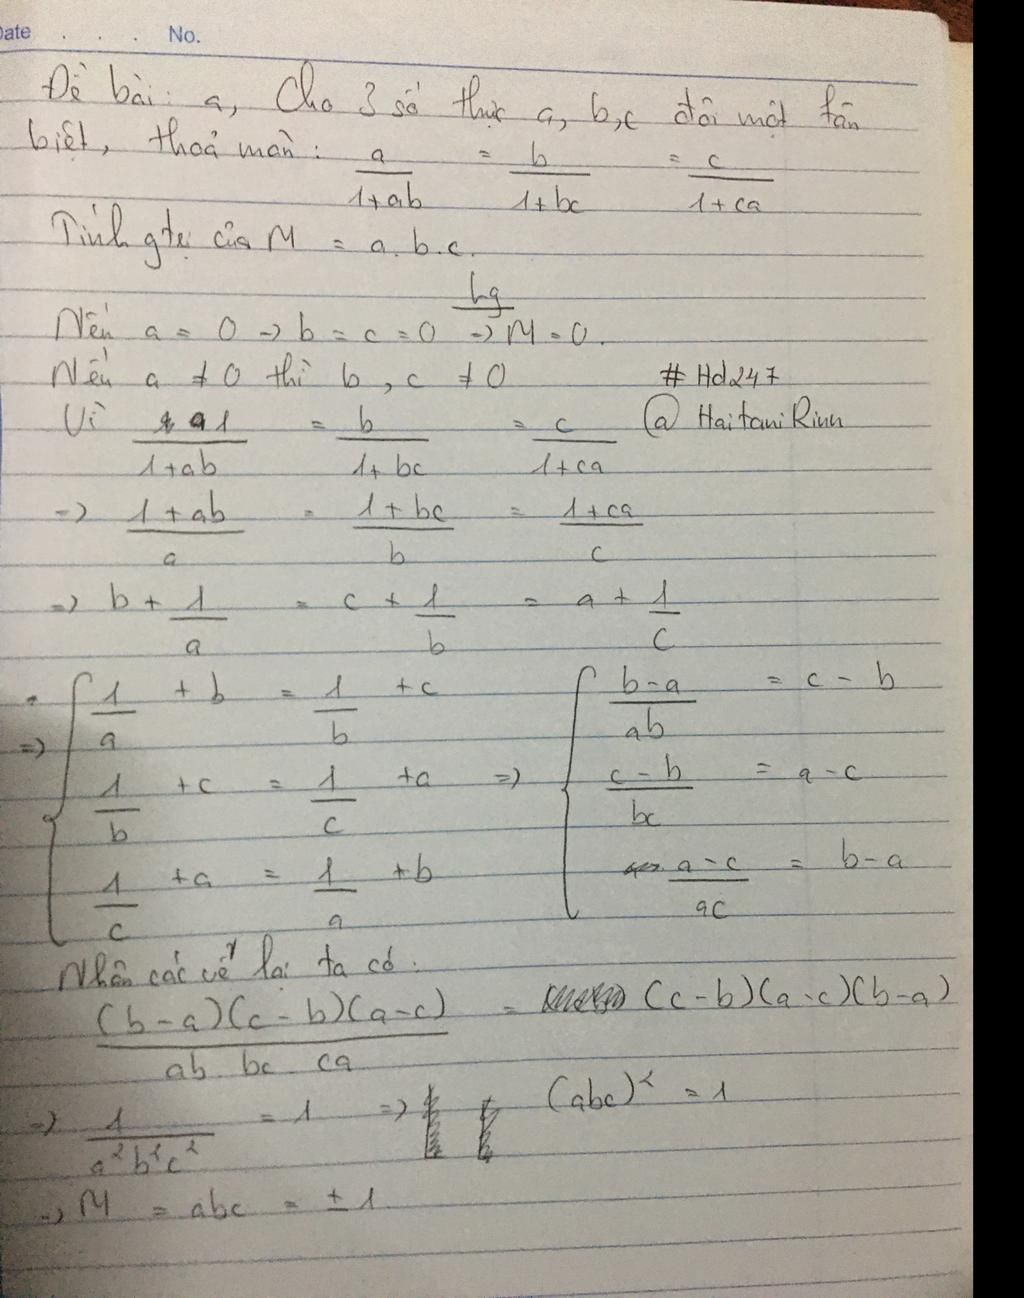 Date . . . No.
Đề bài: a, Cho 3 số thực a, b, c đôi một fân
biệt, thoả mãn: a/(1+ab) = b/(1+bc) = c/(1+ca)
Tính gtrị của M = a.b.c.
bg
Nếu a = 0 -> b = c = 0 -> M = 0.
Nếu a ≠ 0 thì b, c ≠ 0 # Hd247
Vì a1/(1+ab) = b/(1+bc) = c/(1+ca) @ Haitani Rinn
=> (1+ab)/a = (1+bc)/b = (1+ca)/c
=> b + 1/a = c + 1/b = a + 1/c
=> { 1/a + b = 1/b + c
1/b + c = 1/c + a
1/c + a = 1/a + b
=> { (b-a)/ab = c - b
(c-b)/bc = a - c
(a-c)/ac = b - a
Nhân các vế lại ta có:
(b-a)(c-b)(a-c)/(ab.bc.ca) = (c-b)(a-c)(b-a)
=> 1/(a²b²c²) = 1 => (abc)² = 1
=> M = abc = ± 1